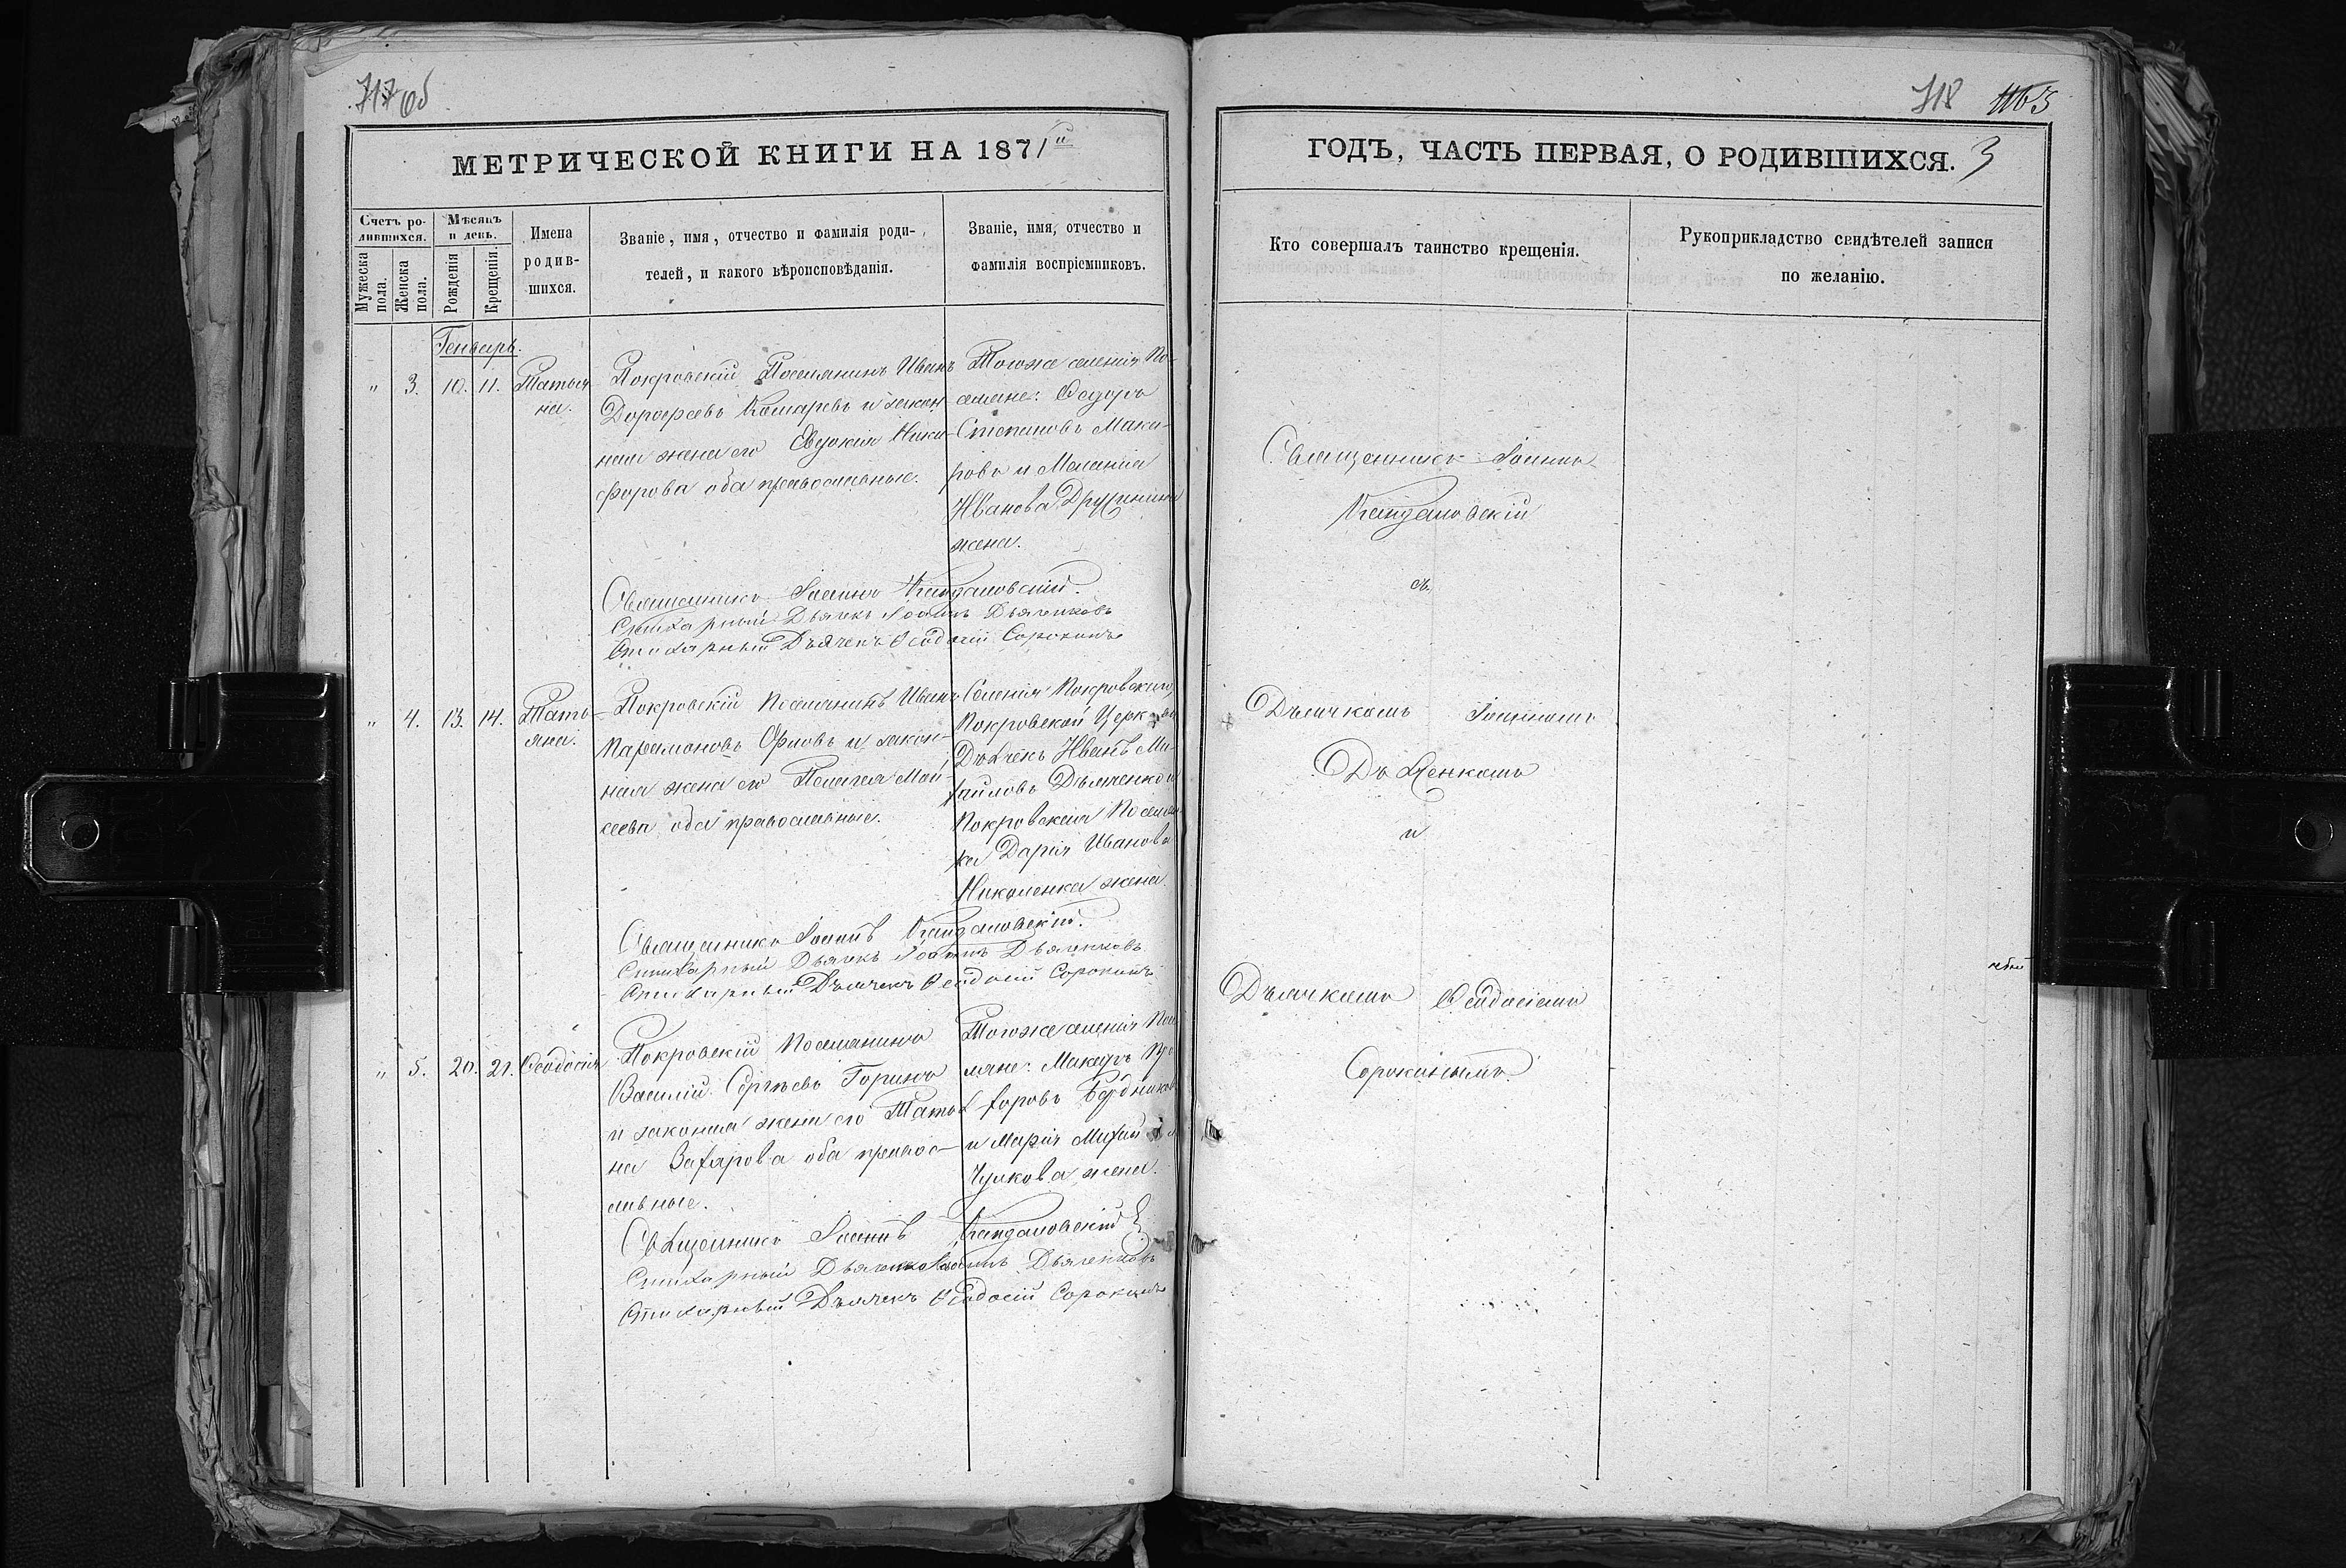 717 об
МЕТРИЧЕСКОЙ КНИГИ НА 1871й
Счетъ ро-
дившихся.
Мужеска пола.
Женска пола.
Мѣсяцъ и день.
Рожденія
Крещенія.
Имена
родив-
шихся.
Званіе, имя, отчество и фамилія роди-
телей, и какого вѣроисповѣданія.
Званіе, имя, отчество и
фамилія воспріемниковъ.
Генварь.
" 3. 10. 11. Татья
на.
Покровскій Поселянинъ Иванъ
Дорофеевъ Комаревъ и закон
ная жена его Евдокія Ники-
форова оба православные.
Тогоже селенія По-
селяне: Ѳедоръ
Степановъ Мака-
ровъ и Меланія
Иванова
жена.
Священникъ Іоаннъ
Стихарный Дьячекъ Іоаннъ Дьяченковъ
Стихарный Дьячекъ Ѳеодосій Сорокинъ
" 4. 13. 14. Тать-
яна.
Покровскій Поселянинъ Иванъ
Парамоновъ Орловъ и закон-
ная жена его Пелагея Мои-
сеева, оба православные.
Селенія Покровскаго,
Покровской Церкви
Дьячекъ Иванъ Ми-
хайловъ Дьяченко и
Покровская Поселян
ка Дарія Иванова
Николенка жена.
Священникъ Іоаннъ
Стихарный Дьячекъ Іоаннъ Дьяченковъ
Стихарный Дьячекъ Ѳеодосій Сорокинъ
" 5. 20. 21. Ѳеодосія
Покровскій Поселянинъ
Василій Сергѣевъ Горинъ
и законая жена его Татья
на Захарова оба правос-
лавные.
Тогоже селенія Посе
ляне: Макаръ
и Марія
Чулкова жена.
Священникъ Іоаннъ
Стихарный Дьячекъ Іоаннъ Дьяченковъ
Стихарный Дьячекъ Ѳеодосій Сорокинъ
718
3
ГОДЪ, ЧАСТЬ ПЕРВАЯ, О РОДИВШИХСЯ.
Кто совершалъ таинство крещенія.
Рукоприкладство свидѣтелей записи
по желанію.
Священникъ Іоаннъ
съ
Дьячкомъ Іоанномъ
Дьяченкомъ
и
Дьячкомъ Ѳеодосіемъ
Сорокинымъ.